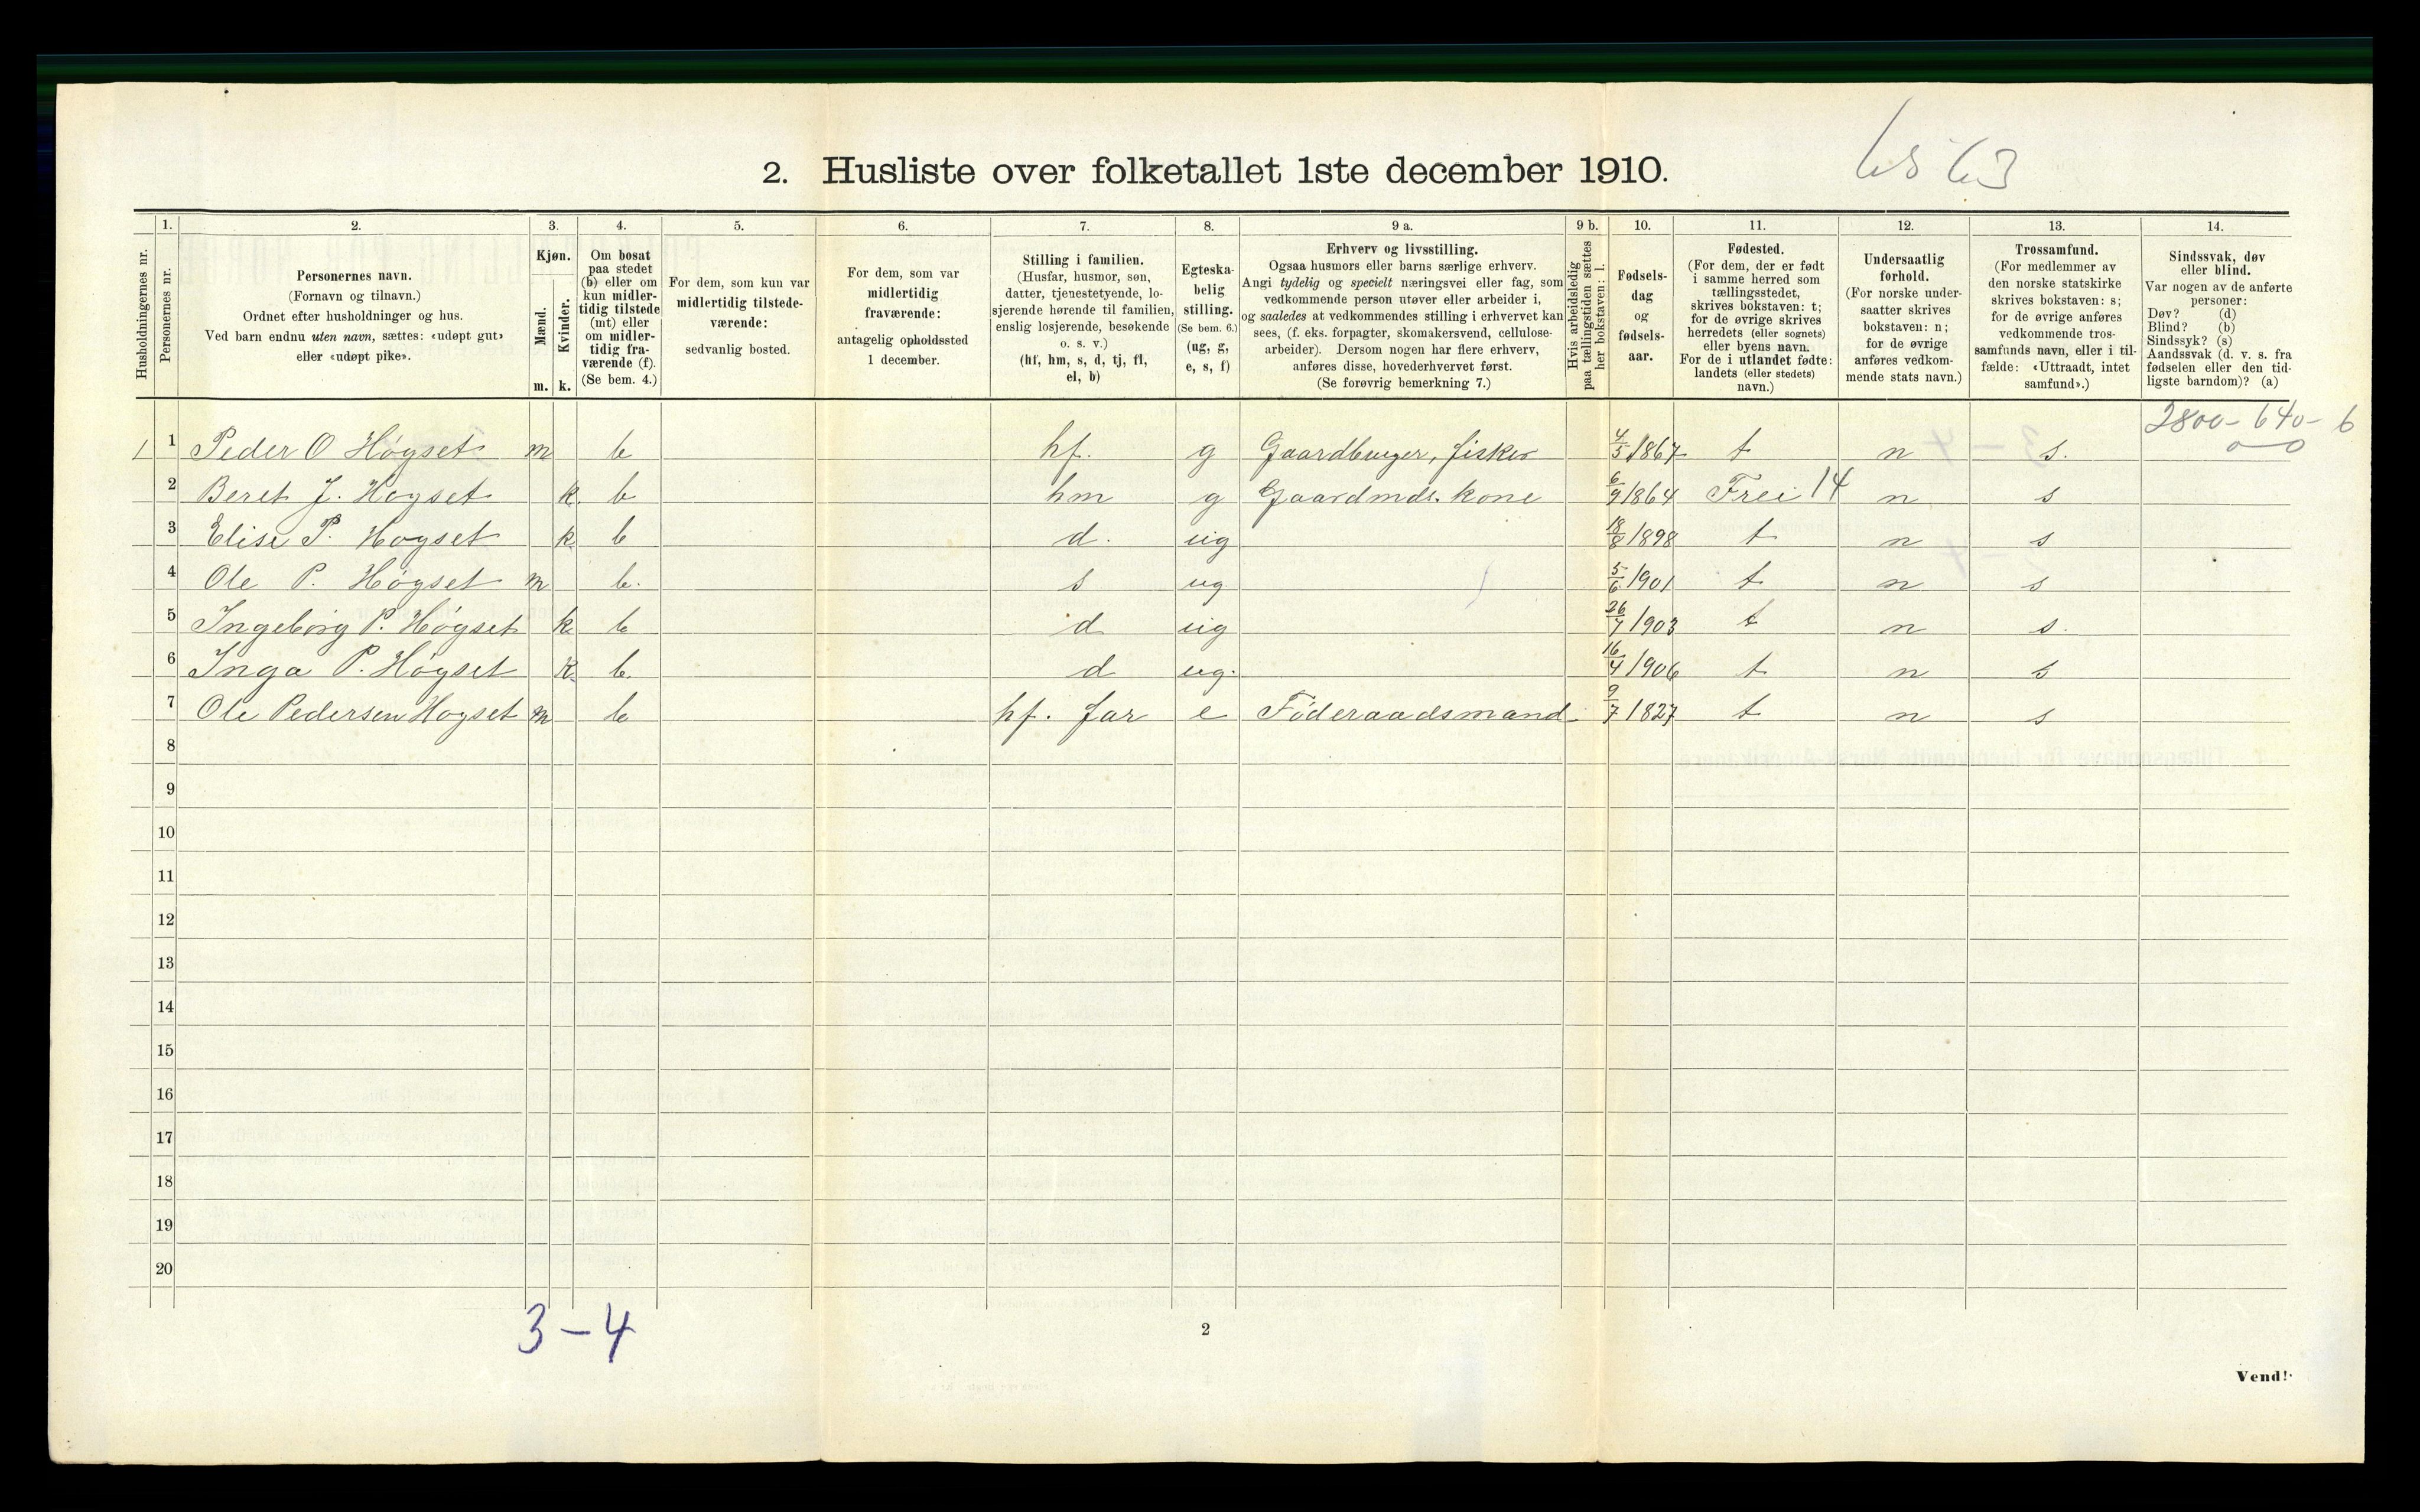 2. Husliste over folketallet 1ste december 1910.
1. 2. 3. 4. 5. 6. 7. 8. 9 a. 9 b. 10. 11. 12. 13. 14.
Husholdningernes nr.
Personernes nr.
Personernes navn.
(Fornavn og tilnavn.)
Ordnet efter husholdninger og hus.
Ved barn endnu uten navn, sættes: «udøpt gut»
eller «udøpt pike».
Kjøn.
Mænd.
Kvinder.
m. k.
Om bosat
paa stedet
(b) eller om
kun midler-
tidig tilstede
(mt) eller
om midler-
tidig fra-
værende (f).
(Se bem. 4.)
For dem, som kun var
midlertidig tilstede-
værende:
sedvanlig bosted.
For dem, som var
midlertidig
fraværende:
antagelig opholdssted
1 december.
Stilling i familien.
(Husfar, husmor, søn,
datter, tjenestetyende, lo-
sjerende hørende til familien,
enslig losjerende, besøkende
o. s. v.)
(hf, hm, s, d, tj, fl,
el, b)
Egteska-
belig
stilling.
(Se bem. 6.)
(ug, g,
e, s, f)
Erhverv og livsstilling.
Ogsaa husmors eller barns særlige erhverv.
Angi tydelig og specielt næringsvei eller fag, som
vedkommende person utøver eller arbeider i,
og saaledes at vedkommendes stilling i erhvervet kan
sees, (f. eks. forpagter, skomakersvend, cellulose-
arbeider). Dersom nogen har flere erhverv,
anføres disse, hovederhvervet først.
(Se forøvrig bemerkning 7.)
Hvis arbeidsledig
paa tællingstiden sættes
her bokstaven: l.
Fødsels-
dag
og
fødsels-
aar.
Fødested.
(For dem, der er født
i samme herred som
tællingsstedet,
skrives bokstaven: t;
for de øvrige skrives
herredets (eller sognets)
eller byens navn.
For de i utlandet fødte:
landets (eller stedets)
navn.)
Undersaatlig
forhold.
(For norske under-
saatter skrives
bokstaven: n;
for de øvrige
anføres vedkom-
mende stats navn.)
Trossamfund.
(For medlemmer av
den norske statskirke
skrives bokstaven: s;
for de øvrige anføres
vedkommende tros-
samfunds navn, eller i til-
fælde: «Uttraadt, intet
samfund».)
Sindssvak, døv
eller blind.
Var nogen av de anførte
personer:
Døv? (d)
Blind? (b)
Sindssyk? (s)
Aandssvak (d. v. s. fra
fødselen eller den tid-
ligste barndom)? (a)
2800 - 640 - 6
0 - 0
1 1 Peder O Høgset m b hf. g Gaardbruger, fisker 4/5 1867 t n s.
2 Beret J. Høgset k. b hm g Gaardmds. kone 6/9 1864 Frei 14 n s
3 Elise P. Høgset k b d. ug 18/8 1898 t n s
4 Ole P. Høgset m b. s ug 5/6 1901 t n s
5 Ingeborg P. Høgset k b d ug 26/7 1903 t n s.
6 Inga P. Høgset k b. d ug. 16/4 1906 t n s
7 Ole Pedersen Høgset m b hf. far e Føderaadsmand 9/7 1827 t n s
8
9
10
11
12
13
14
15
16
17
18
19
20
3-4
2
Vend!